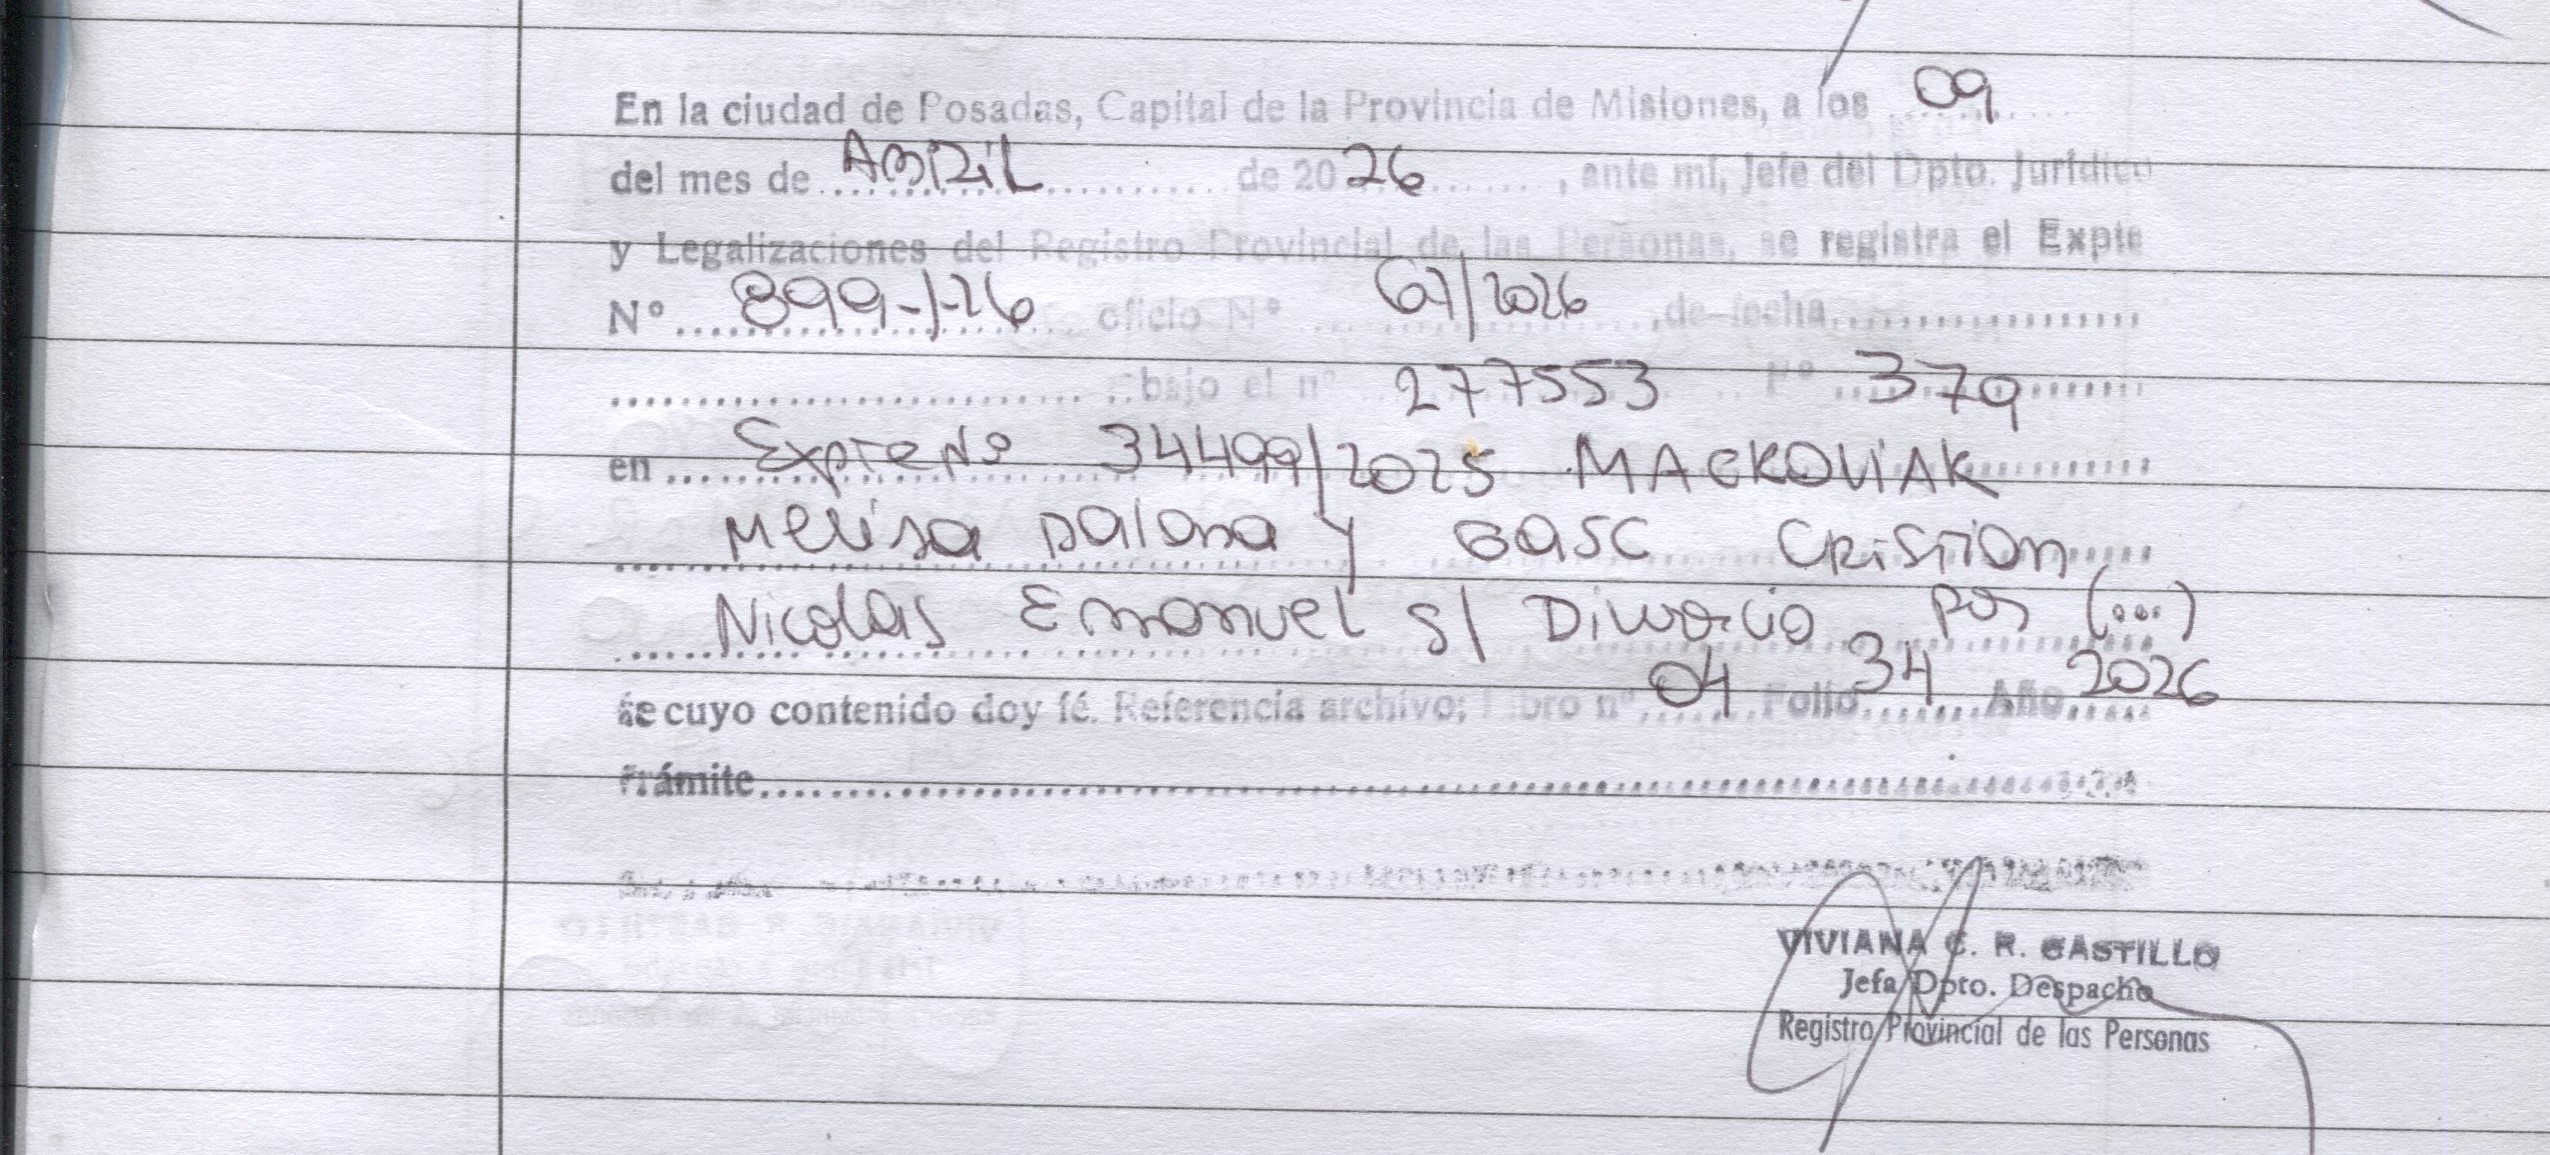 En la ciudad de Posadas, Capital de la Provincia de Misiones, a los 09
del mes de ABRIL de 2026, ante mí, Jefe del Dpto. Jurídico
y Legalizaciones del Registro Provincial de las Personas, se registra el Expte
N° 899-J-26 oficio N° 67/2026, de fecha
bajo el n° 277553 F° 379
en Expte N° 34499/2025 MACKOVIAK
Melisa Daiana y GASC Cristian
Nicolas Emanuel s/ Divorcio por (...)
de cuyo contenido doy fé. Referencia archivo: Libro n° 04 Folio 34 Año 2026
Trámite
VIVIANA C. R. CASTILLO
Jefa Dpto. Despacho
Registro Provincial de las Personas